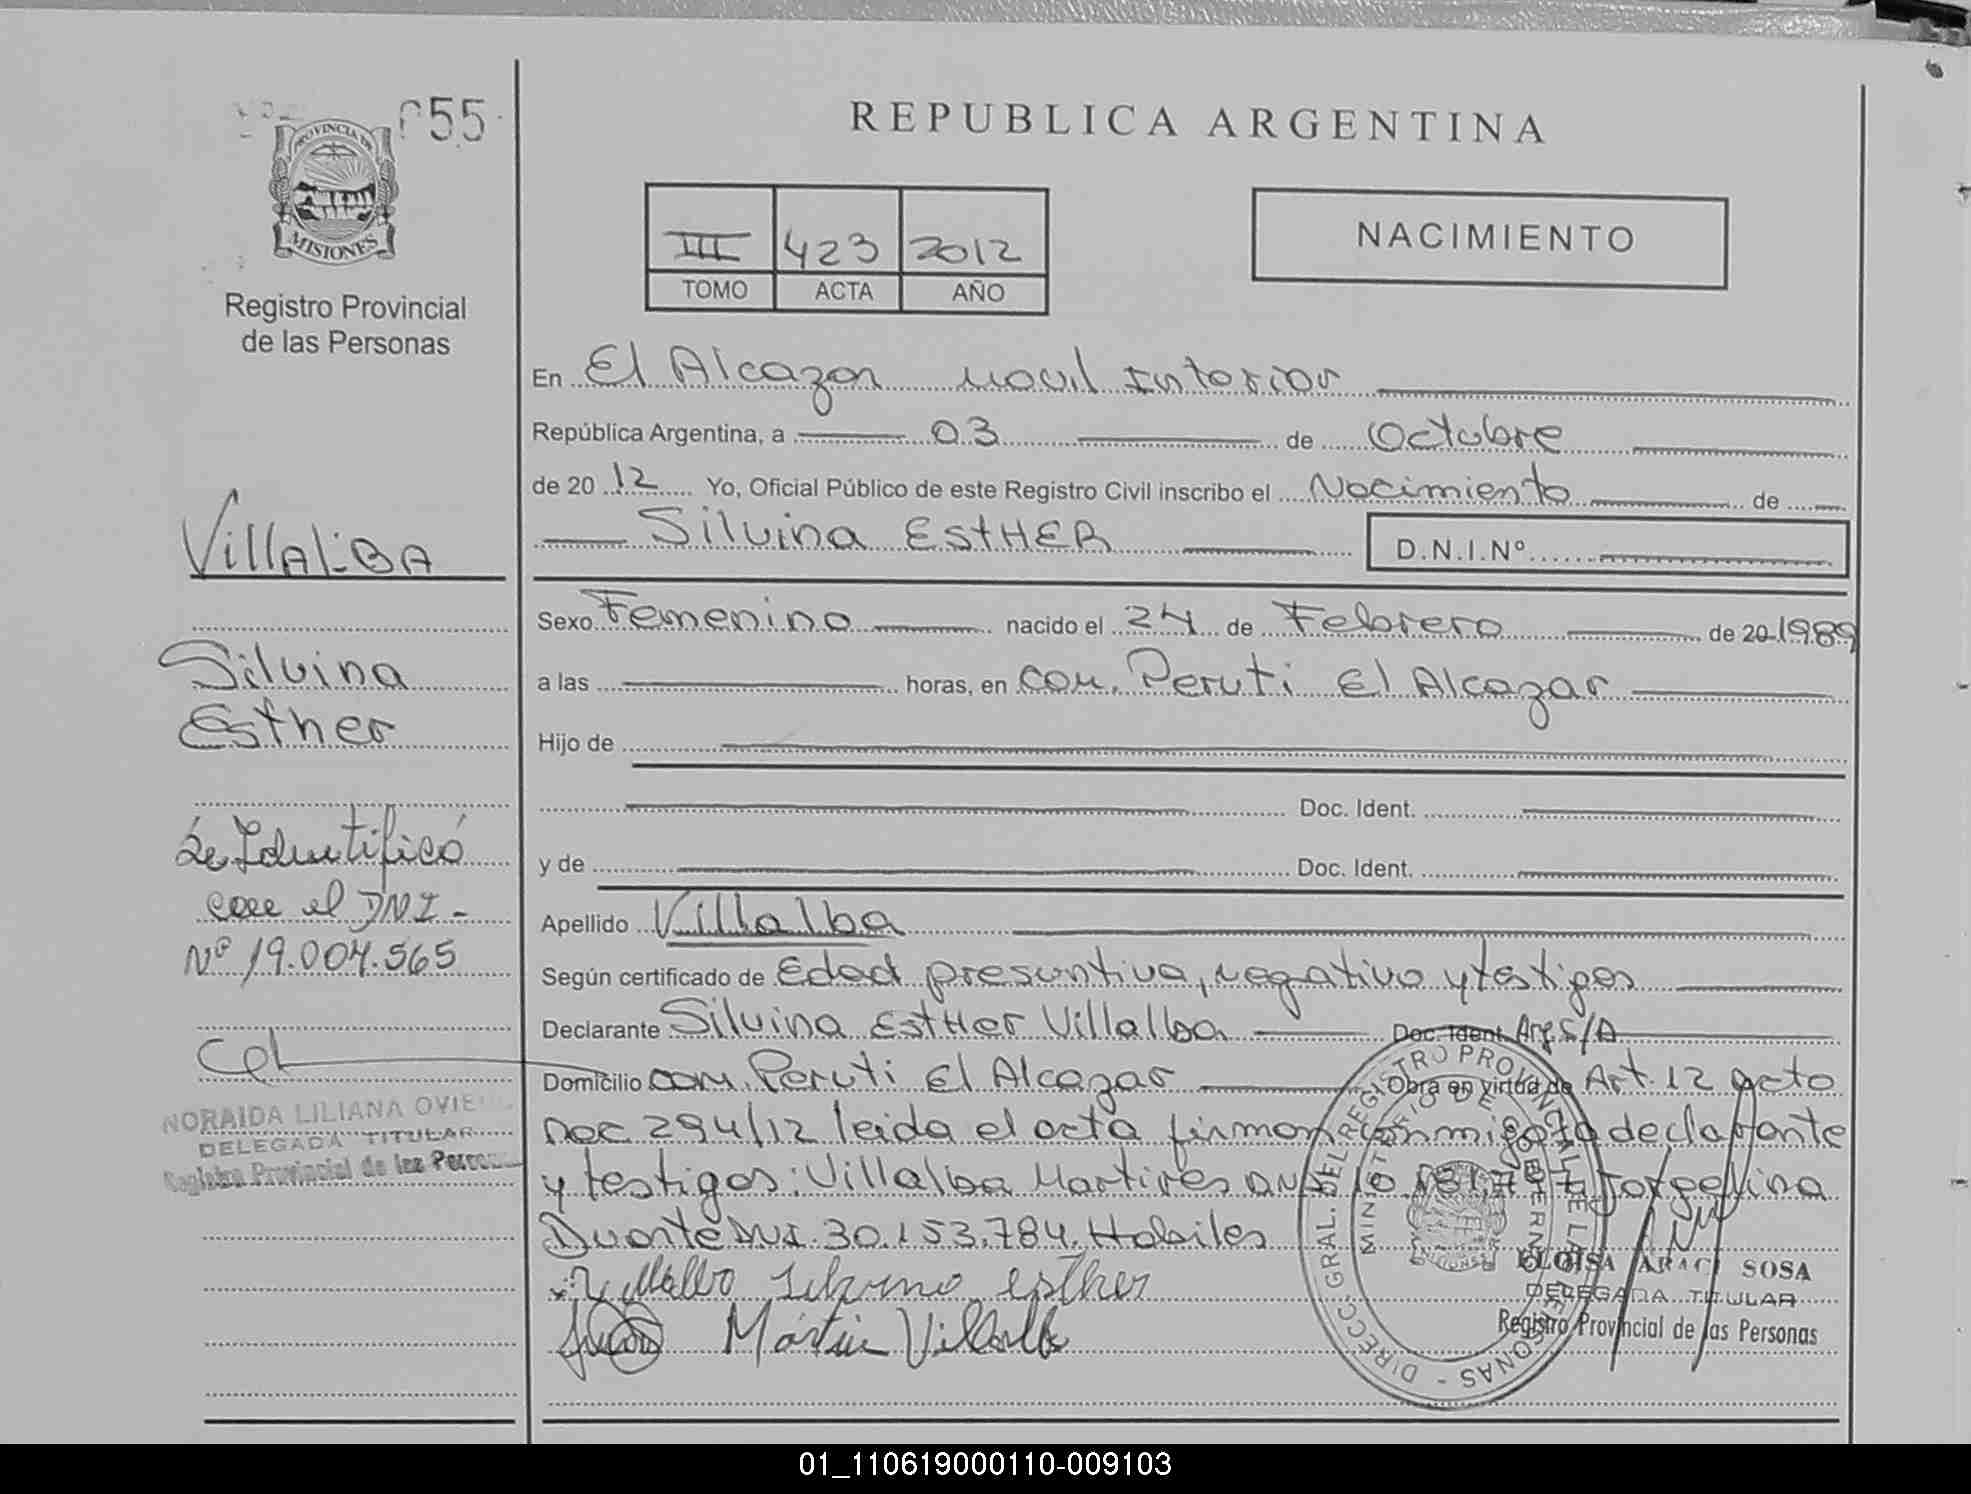 055
PROVINCIA DE
MISIONES
Registro Provincial
de las Personas
VillALBA
Silvina
Esther
Se Identificó
con el DNI-
Nº 19.004.565
NORAIDA LILIANA OVIE
DELEGADA TITULAR
Registro Provincial de las Personas
REPUBLICA ARGENTINA
III 423 2012
TOMO ACTA AÑO
NACIMIENTO
En El Alcazar movil Interior
República Argentina, a 03 de Octubre
de 20 12 Yo, Oficial Público de este Registro Civil inscribo el Nacimiento de
Silvina EstHER D.N.I.Nº
Sexo Femenino nacido el 24 de Febrero de 20 1989
a las horas, en com. Peruti El Alcazar
Hijo de
Doc. Ident.
y de Doc. Ident.
Apellido Villalba
Según certificado de Edad presuntiva, negativo y testigos
Declarante Silvina EstHer Villalba Doc. Ident. Arg S/A
Domicilio com. Peruti El Alcazar Obra en virtud de Art. 12 acto
Dec 294/12 leida el acta firman conmigo la declarante
y testigos: Villalba Martires DNI Jorgelina
Duarte DNI. 30.153.784. Habiles
Villalba Silvina esther
Mártire Villalba
DIRECC. GRAL. DEL REGISTRO PROVINCIAL DE LAS PERSONAS
MINISTERIO DE GOBIERNO
MISIONES
ELOISA ARACI SOSA
DELEGADA TITULAR
Registro Provincial de las Personas
01_110619000110-009103